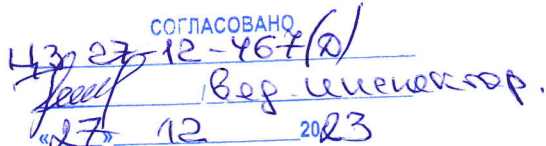 СОГЛАСОВАНО
ЦЗ 27-12-467(Д)
вед. инспектор.
«27» 12 2023